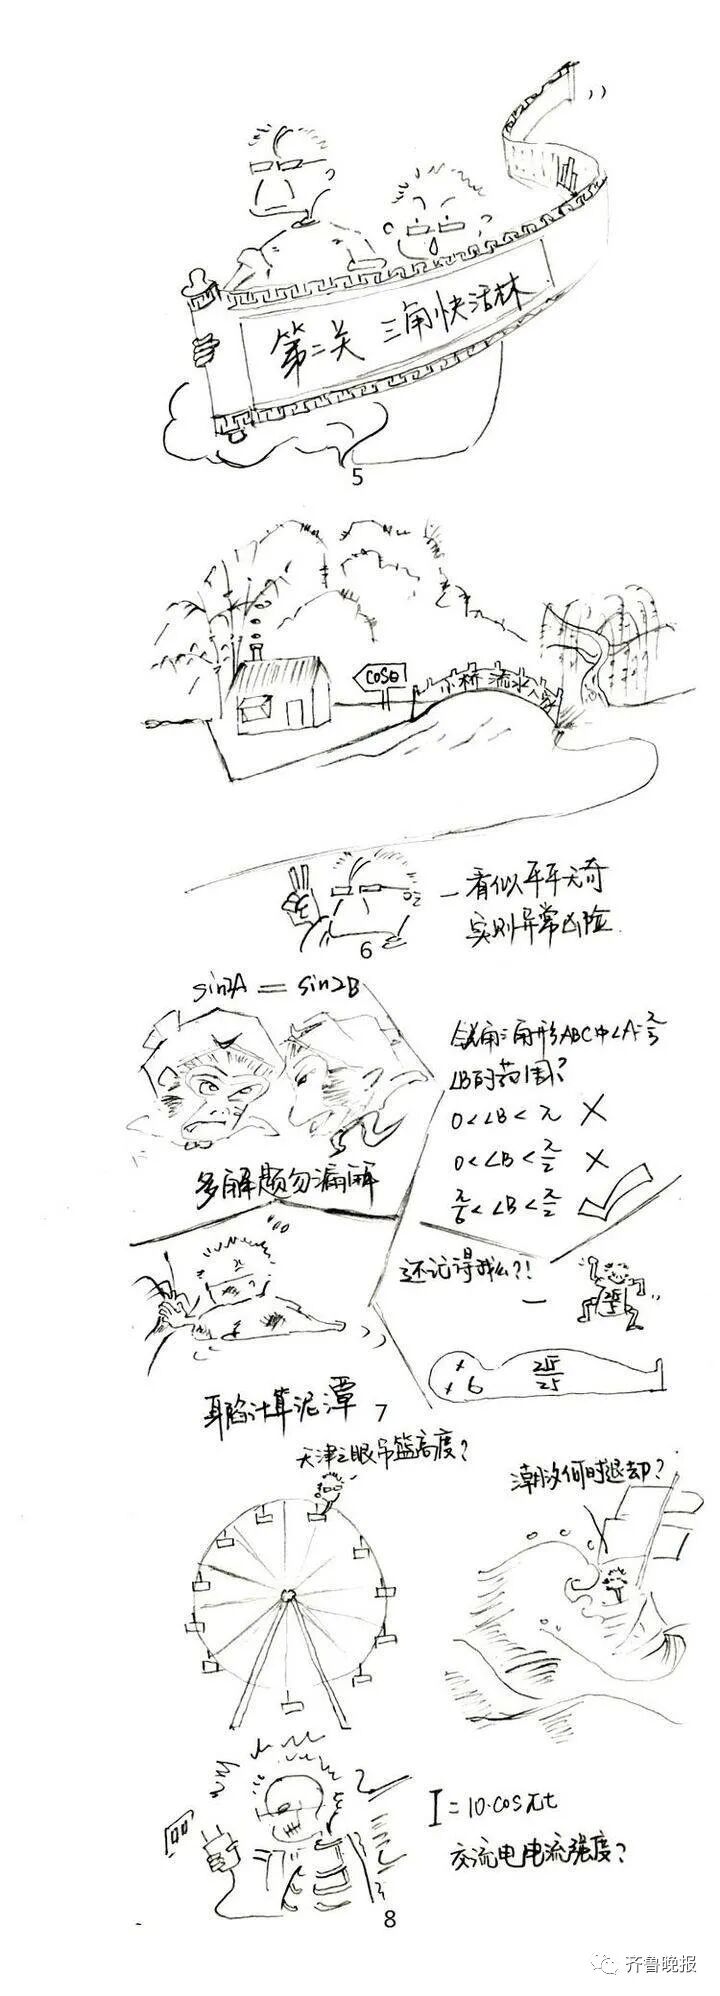 第二关 三角快活林
5
COSθ
小桥流水人家
看似平平无奇
实则异常凶险
6
sin2A = sin2B
多解题勿漏解
锐角三角形ABC中∠A=π/3
∠B的范围?
0<∠B<π ×
0<∠B<π/2 ×
π/6<∠B<π/2 ✓
还记得我么?!
身陷计算泥潭
7
天津之眼吊篮高度?
潮汐何时退却?
I=10·cosπt
交流电电流强度?
8
齐鲁晚报